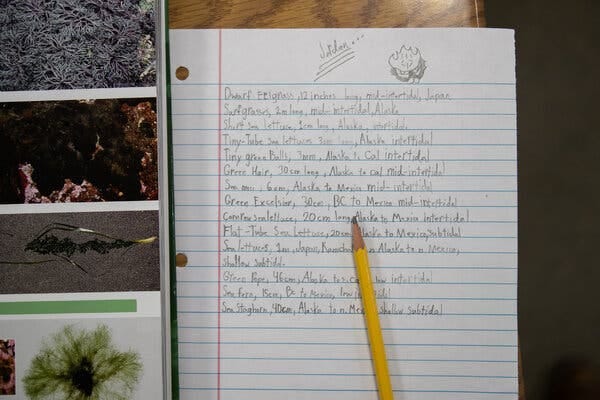 Jordan...
Dwarf Eelgrass, 12 inches long, mid-intertidal, Japan
Surfgrasses, 2m long, mid-intertidal, Alaska
Sea lettuce, 1cm long, Alaska, intertidal
Tiny-Tube Sea lettuces 3cm long, Alaska intertidal
Tiny green Balls, 3mm, Alaska to Cal intertidal
Green Hair, 30cm long, Alaska to cal mid-intertidal
Sea 6cm, Alaska to Mexico mid-intertidal
Green Excelsior, 30cm, BC to Mexico mid-intertidal
sea lettuce, 20cm long Alaska to Mexico intertidal
Flat-Tube Sea Lettuce, 20cm Alaska to Mexico, Subtidal
Sea lettuces, 1m, Japan, Alaska to n. Mexico,
Shallow Subtidal
Green Rope, 46cm, Alaska to low intertidal
Sea Fern, 15cm, BC to Mexico,
Sea Staghorn, 40cm, Alaska to n. Mexico Shallow subtidal